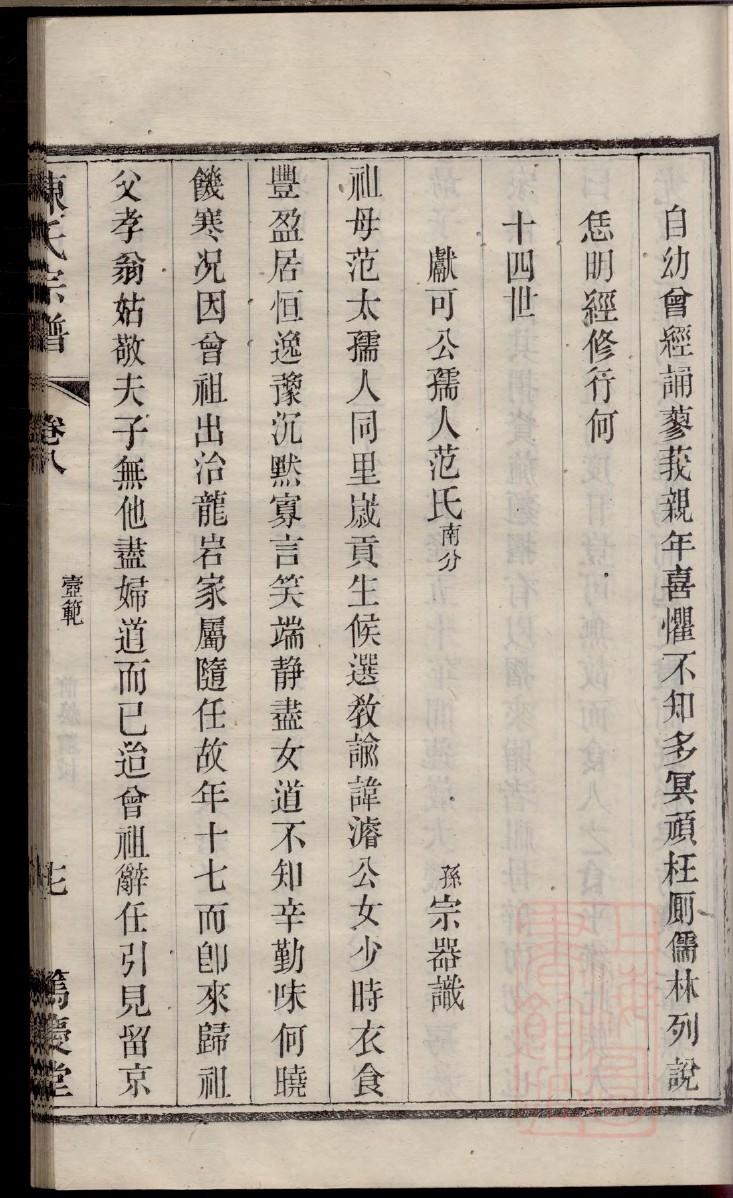 自幼曾經誦蓼莪親年喜懼不知多冥頑枉厠儒林列說
恁明經修行何
十四世
獻可公孺人范氏南分 孫宗器識
祖母范太孺人同里歲貢生候選教諭諱濬公女少時衣食
豐盈居恒逸豫沉默寡言笑端静盡女道不知辛勤味何曉
饑寒况因曾祖出治龍岩家屬隨任故年十七而卽來歸祖
父孝翁姑敬夫子無他盡婦道而已迨曾祖辭任引見留京
陳氏宗譜 卷八 壼範 七 篤慶堂